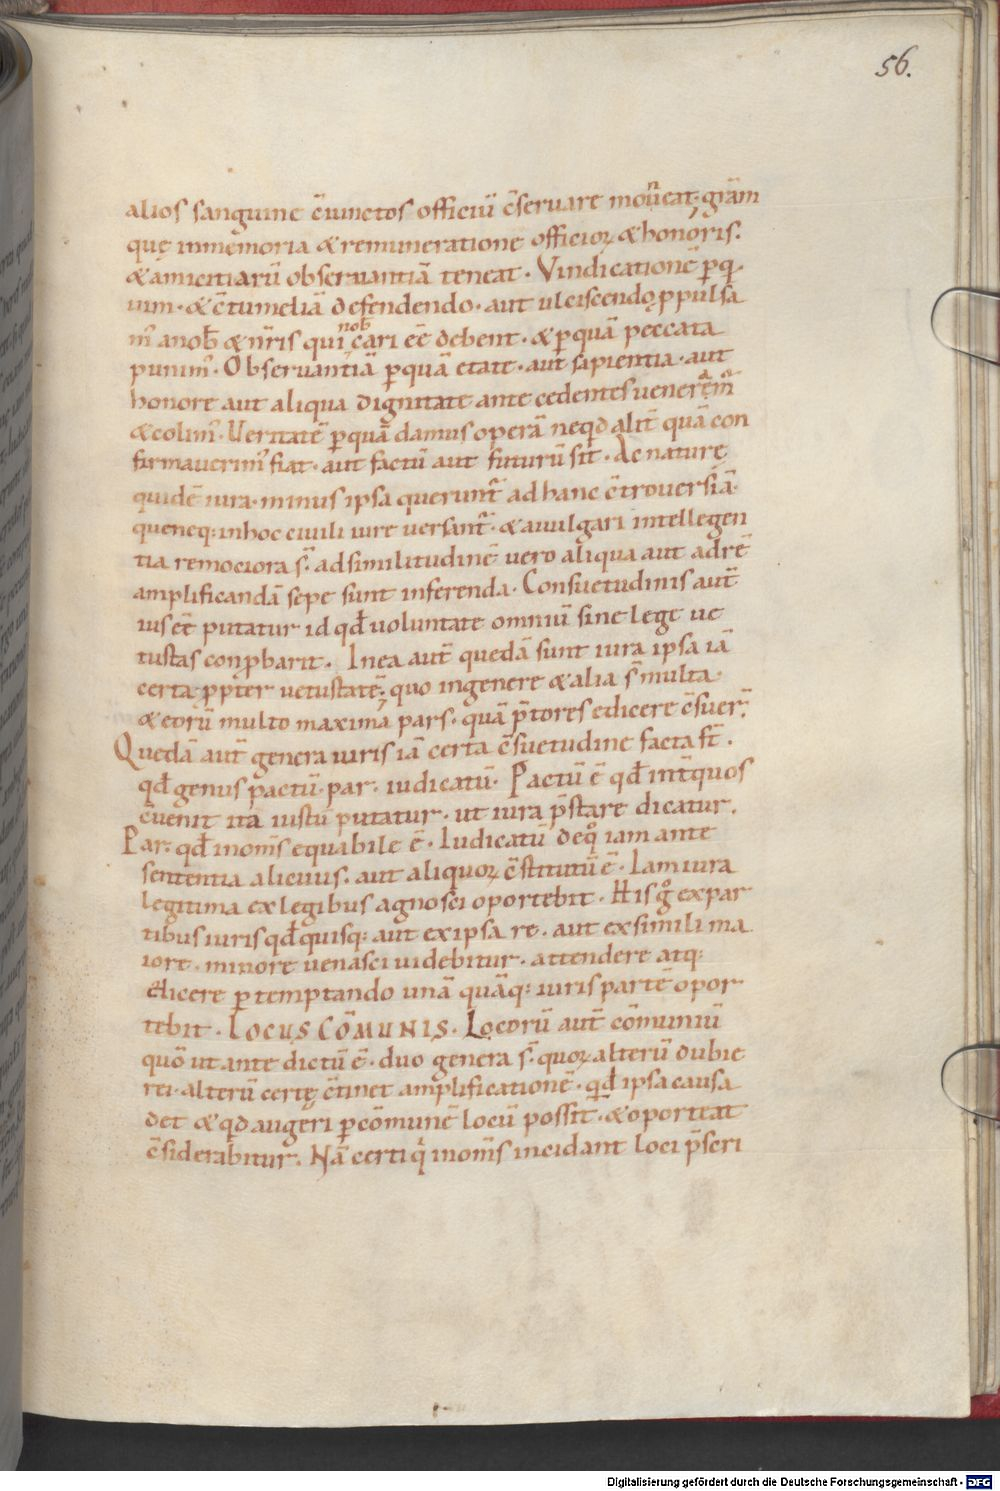 56.
alios sanguine c̄iunctos officiū c̄seruare moueat, grām
quę inmemoria & remuneratione officioꝝ & honoris.
& amicitiarū obseruantiā teneat. Vindicationē ꝑq̄
uim. & c̄tumeliā defendendo. aut ulciscendo, ꝓpulsa
m' anob̄ & nr̄is qui nob̄ cari eē debent. & ꝑquā peccata
punim'. Obseruantiā ꝑquā etate. aut sapientia. aut
honore aut aliqua dignitate ante cedentes uenerem̄
& colim'. Ueritatē ꝑquā damus operā neqd alit̄ quā con
firmauerim' fiat. aut factū aut futurū sit. Ac naturę
quidē iura. minus ipsa querunt̄ ad hanc c̄trouersiā.
queneq: inhoc ciuili iure uersant̄. & auulgari intellegen
tia remociora s̄. adsimilitudinē uero aliqua aut adrē
amplificandā sepe sunt inferenda. Consuetudinis aut̄
ius eē putatur id qd̄ uoluntate omniū sine lege ue
tustas conꝓbarit. Inea aut̄ quedā sunt iura ipsa iā
certa ꝓpter uetustatē. quo ingenere & alia s̄ multa.
& eorū multo maxima pars. quā p̄tores edicere c̄suer̄.
Quedā aut̄ genera iuris iā certa c̄suetudine facta st̄.
qd̄ genus pactū. par. iudicatū. Pactū ē qd̄ int̄quos
c̄uenit ita iustū putatur. ut iura p̄stare dicatur.
Par. qd̄ inom̄s equabile ē. Iudicatū deq̊ iam ante
sententia alicuius. aut aliquoꝝ c̄stitutū ē. Iam iura
legitima ex legibus agnosci oportebit. His gͦ expar
tibus iuris qd̄ quisq: aut ex ipsa re. aut exsimili ma
iore. minore uenasci uidebitur. attendere atq:
elicere ꝑtemptando unā quāq: iuris partē opor
tebit. LOCUS COM̄UNIS. Locorū aut̄ cōmuniū
quō ut ante dictū ē. duo genera s̄. quoꝝ alterū dubie
rei. alterū certę c̄tinet amplificationē. qd̄ ipsa causa
det & qd augeri ꝑ cōmunē locū possit. & oporteat
c̄siderabitur. Nā certi q̍ inom̄s incidant loci p̄scri
Digitalisierung gefördert durch die Deutsche Forschungsgemeinschaft - DFG